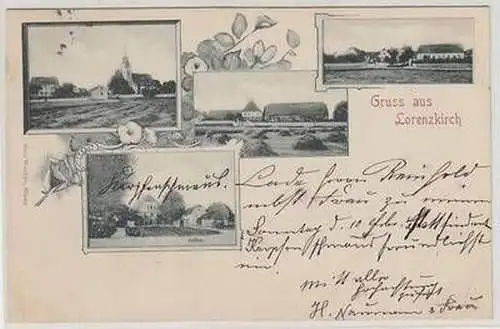 Gruss aus
Lorenzkirch
Karpfenschmaus.
Lade Herrn Reinhold
nebst Frau zu meinem
Sonntag d. 10 Febr. stattfindent
Karpfenschmaus freundlichst
ein.
Mit aller
Hochachtung
H. Naumann & Frau